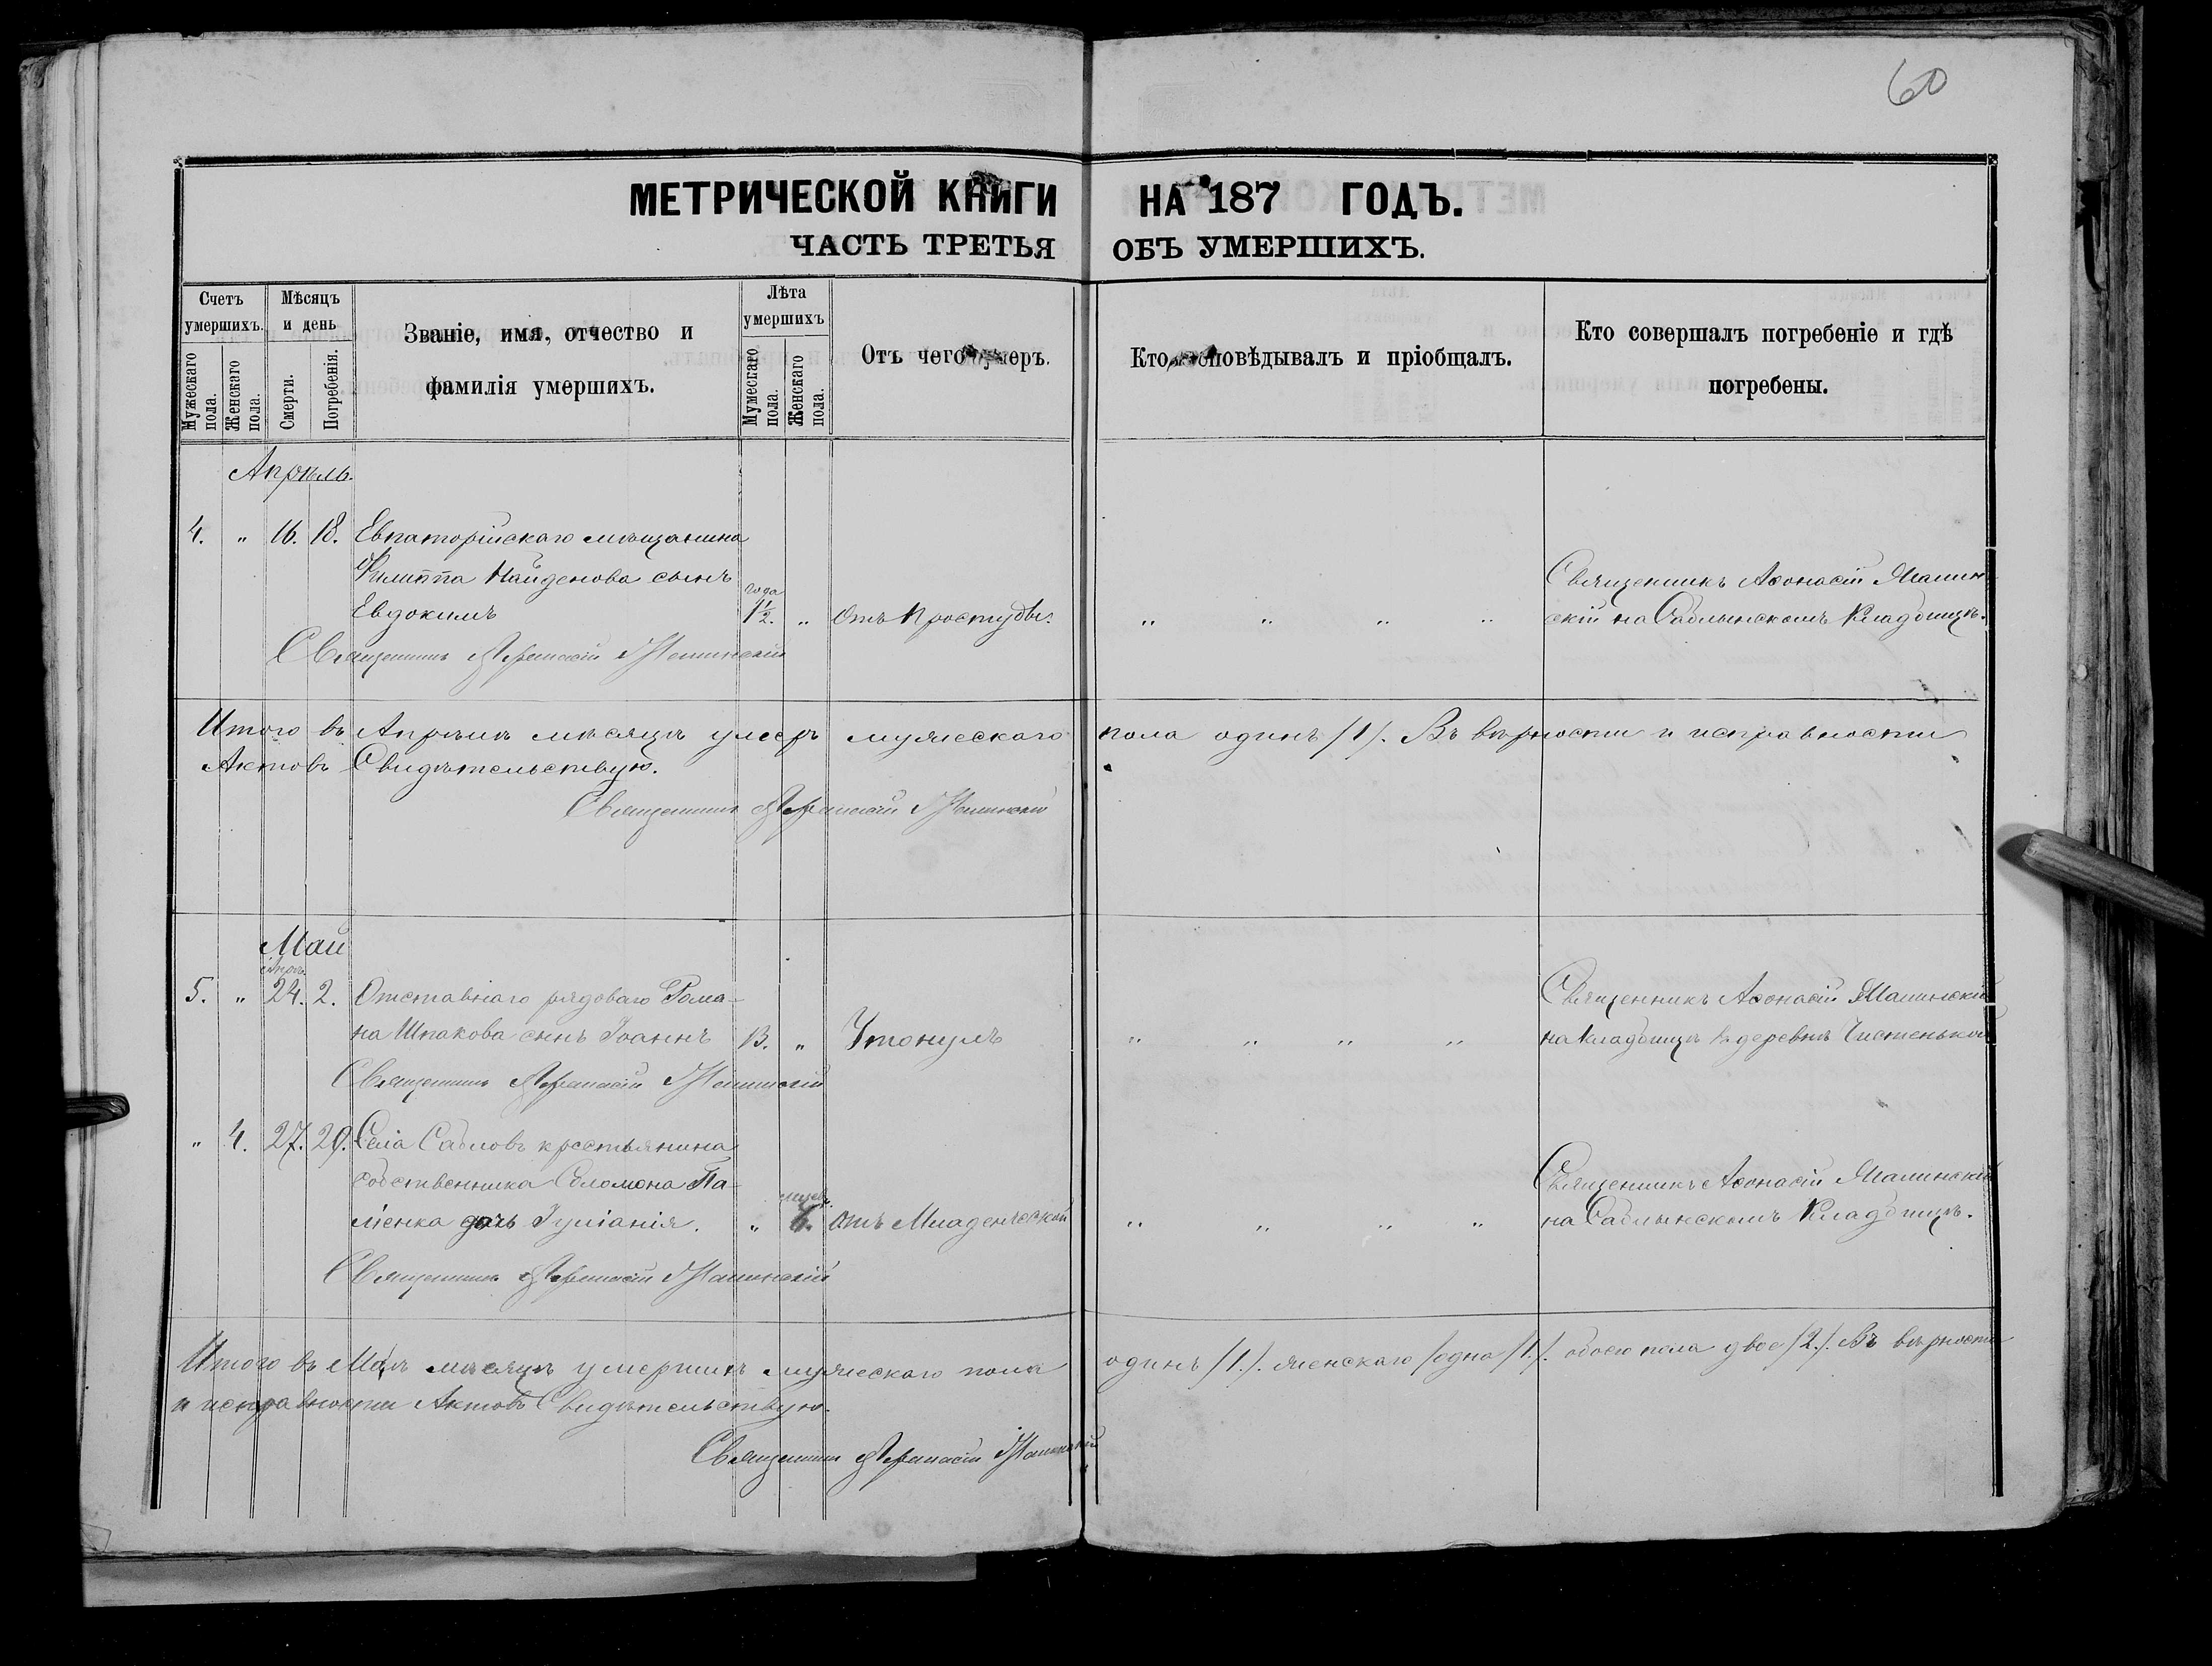 60
МЕТРИЧЕСКОЙ КНИГИ НА 187 ГОДЪ.
ЧАСТЬ ТРЕТЬЯ ОБЪ УМЕРШИХЪ.
Счетъ умершихъ.
Мужескаго пола.
Женскаго пола.
Мѣсяцъ и день
Смерти.
Погребенія.
Званіе, имя, отчество и
фамилія умершихъ.
Лѣта умершихъ
Мужескаго пола.
Женскаго пола.
Отъ чего умеръ.
Кто исповѣдывалъ и пріобщалъ.
Кто совершалъ погребеніе и гдѣ
погребены.
Апрѣль.
4. " 16. 18. Евпаторійскаго мѣщанина
Филиппа Найденова сынъ
Евдокимъ
года
1½. " Отъ простуды. " " " "
Священникъ Аѳонасій Малин
скій на Саблынскомъ Кладбищѣ.
Священникъ Афанасій Малинскій
Итого въ Апрѣлѣ мѣсяцѣ умеръ мужескаго пола одинъ /1/. Въ вѣрности и исправности
Актовъ Свидѣтельствую.
Священникъ Афанасій Малинскій
Май
Апрѣ.
5. " 24. 2. Отставнаго рядоваго Рома-
на Шпакова сынъ Іоаннъ 13. " Утонулъ " " " "
Священникъ Аѳонасій Малинскій
на кладбищѣ въ деревнѣ Чистенькой
Священникъ Афанасій Малинскій
" 4. 27. 29. Села Сабловъ крестьянина
собственника Соломона Па-
ліенка дочь Іуліанія. "
отъ Младенческой " " " "
Священникъ Аѳонасій Малинскій
на Саблынскомъ Кладбищѣ.
Священникъ Афанасій Малинскій
Итого въ Маѣ мѣсяцѣ умершихъ мужескаго пола одинъ /1./. женскаго /одна /1./. обоего пола двое /2./. Въ вѣрности
и исправности Актовъ Свидѣтельствую.
Священникъ Афанасій Малинскій